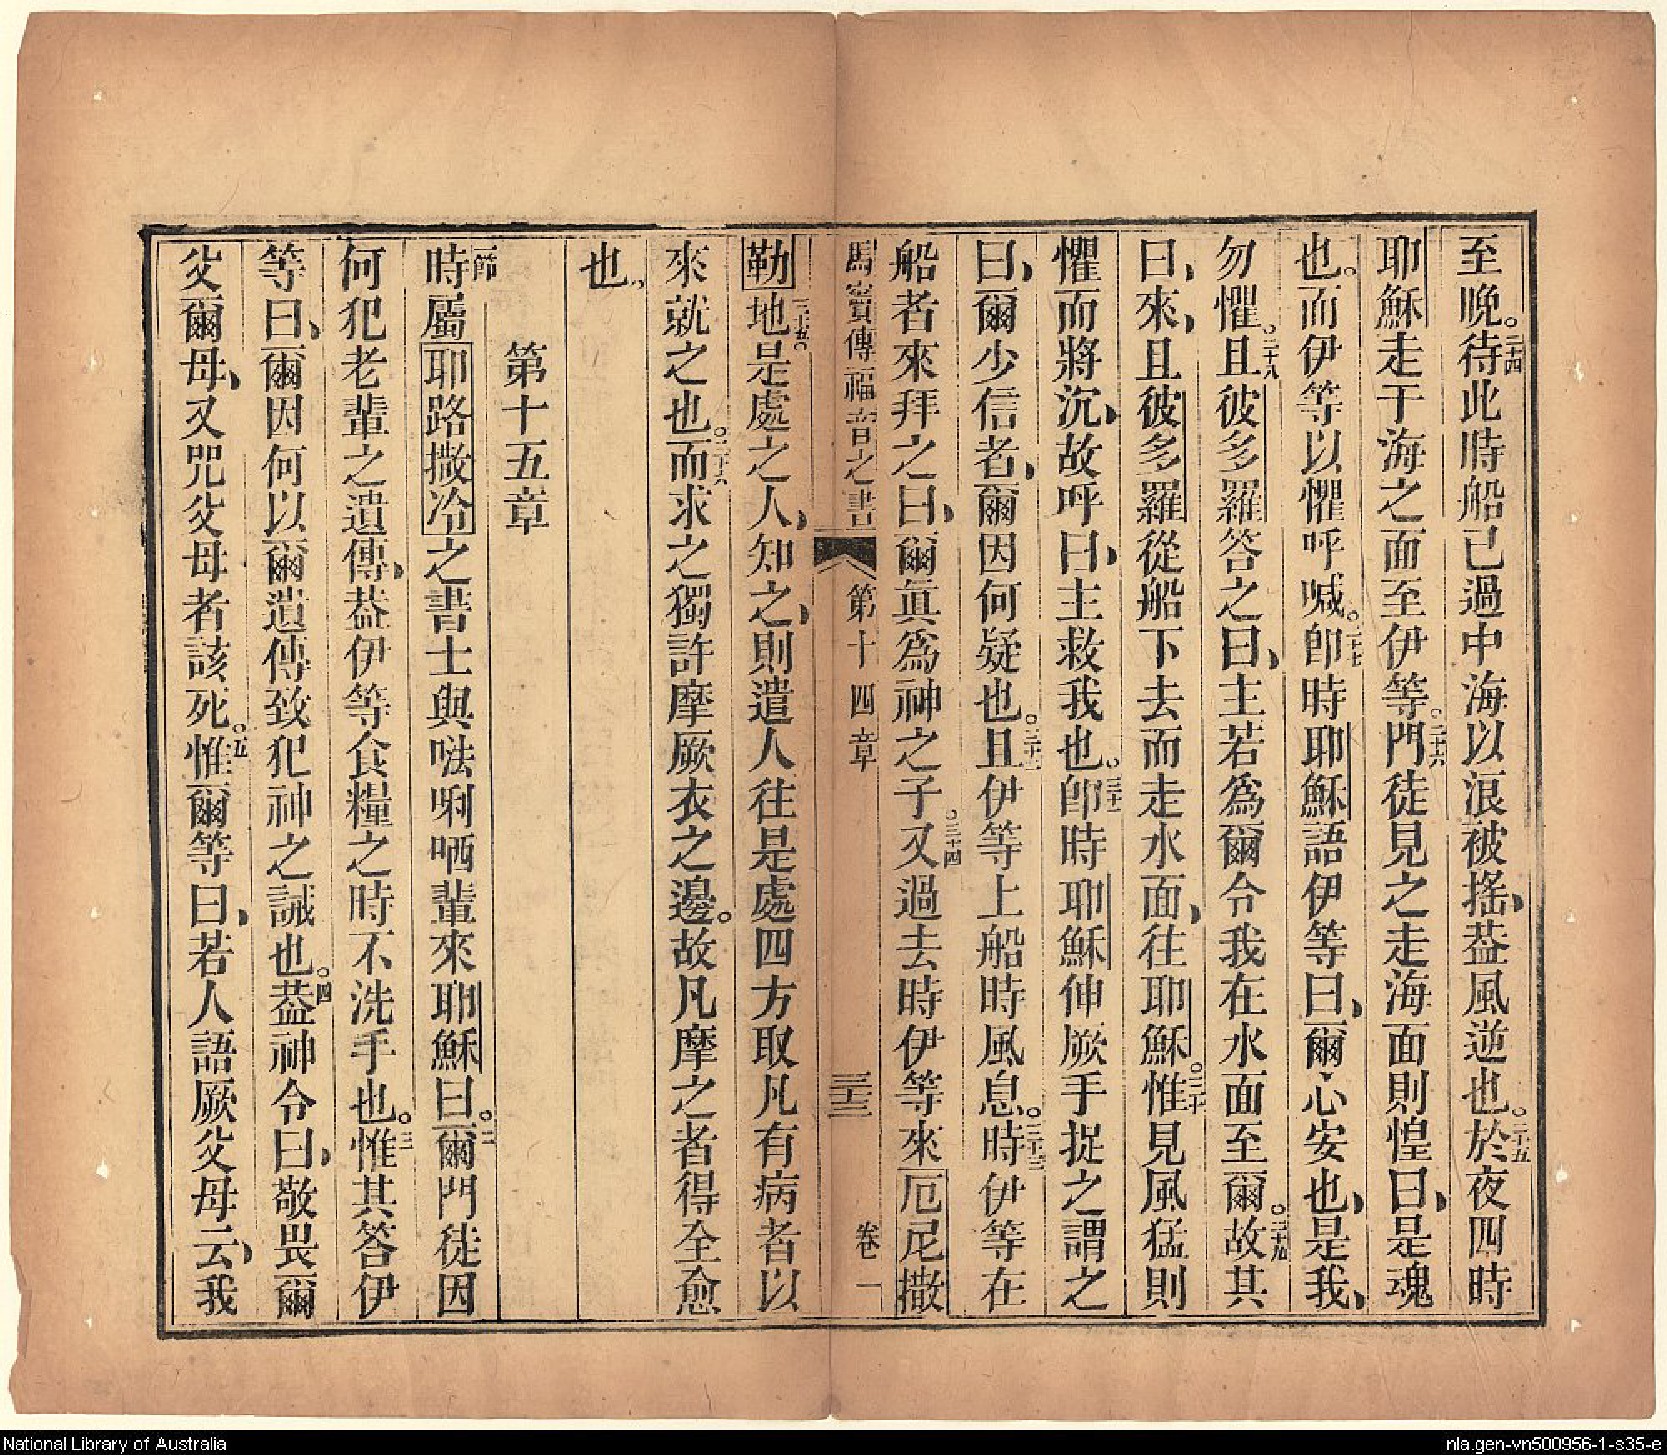 至晚。二十四待此時船已過中海以浪被搖、葢風逆也。二十五於夜四時
耶穌走于海之面而至伊等。二十六門徒見之走海面則惶曰、是魂
也。而伊等以懼呼喊。二十七卽時耶穌語伊等曰、爾心安也、是我、
勿懼。二十八且彼多羅答之曰、主若爲爾令我在水面至爾。二十九故其
曰、來、且彼多羅從船下去而走水面、往耶穌。三十惟見風猛則
懼而將沉、故呼曰、主救我也。三十一卽時耶穌伸厥手捉之謂之
曰、爾少信者、爾因何疑也。三十二且伊等上船時風息。三十三時伊等在
船者來拜之曰、爾眞爲神之子。三十四又過去時伊等來厄尼撒
馬竇傳福音之書 第十四章 三十三 卷一
勒地。三十五是處之人、知之、則遣人往是處四方取凡有病者以
來就之也。三十六而求之獨許摩厥衣之邊。故凡摩之者得全愈
也。
第十五章
一節時屬耶路撒冷之書士與㗶唎哂輩來耶穌曰。二爾門徒因
何犯老輩之遺傳、葢伊等食糧之時不洗手也。三惟其答伊
等曰、爾因何以爾遺傳致犯神之誡也。四葢神令曰、敬畏爾
父爾母、又咒父母者該死。五惟爾等曰、若人語厥父母云、我
National Library of Australia
nla.gen-vn500956-1-s35-e